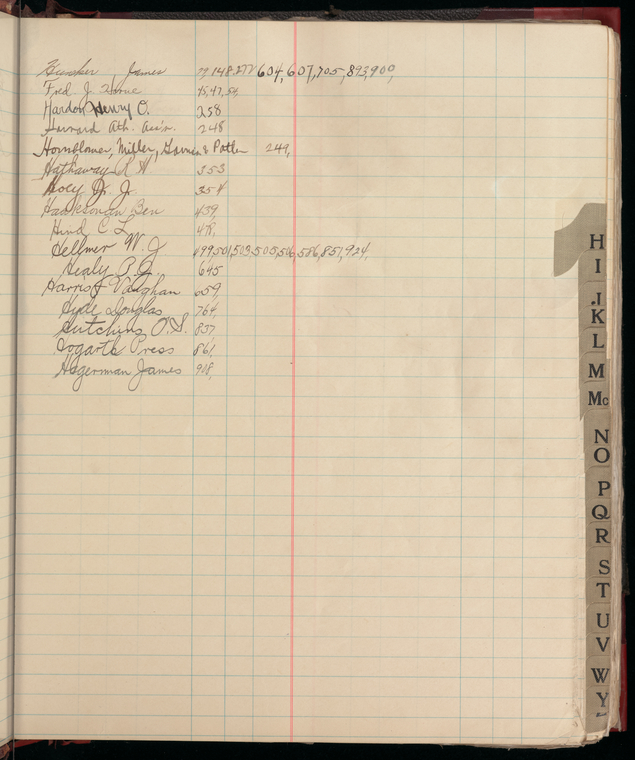 James 604, 607, 705, 893, 900,
Fred. J. 45, 47, 54,
Hardon Henry O. 258
Harvard Ath. Ass'n. 248
Hornblower, Miller, & Potter 249,
Hathaway R H 353
Hoey Jr. J. 354
Hawksman Ben 439,
Hind C L 478,
Hellmer W. J 499, 501, 503, 505, 506, 586, 851, 924,
Healy 645
Harris J Vaughan 659,
Hyde Douglas 764,
Hutchins O.S. 837,
Hogarth Press 861,
Hagerman James 908,
H
I
J
K
L
M
Mc
N
O
P
Q
R
S
T
U
V
W
Y